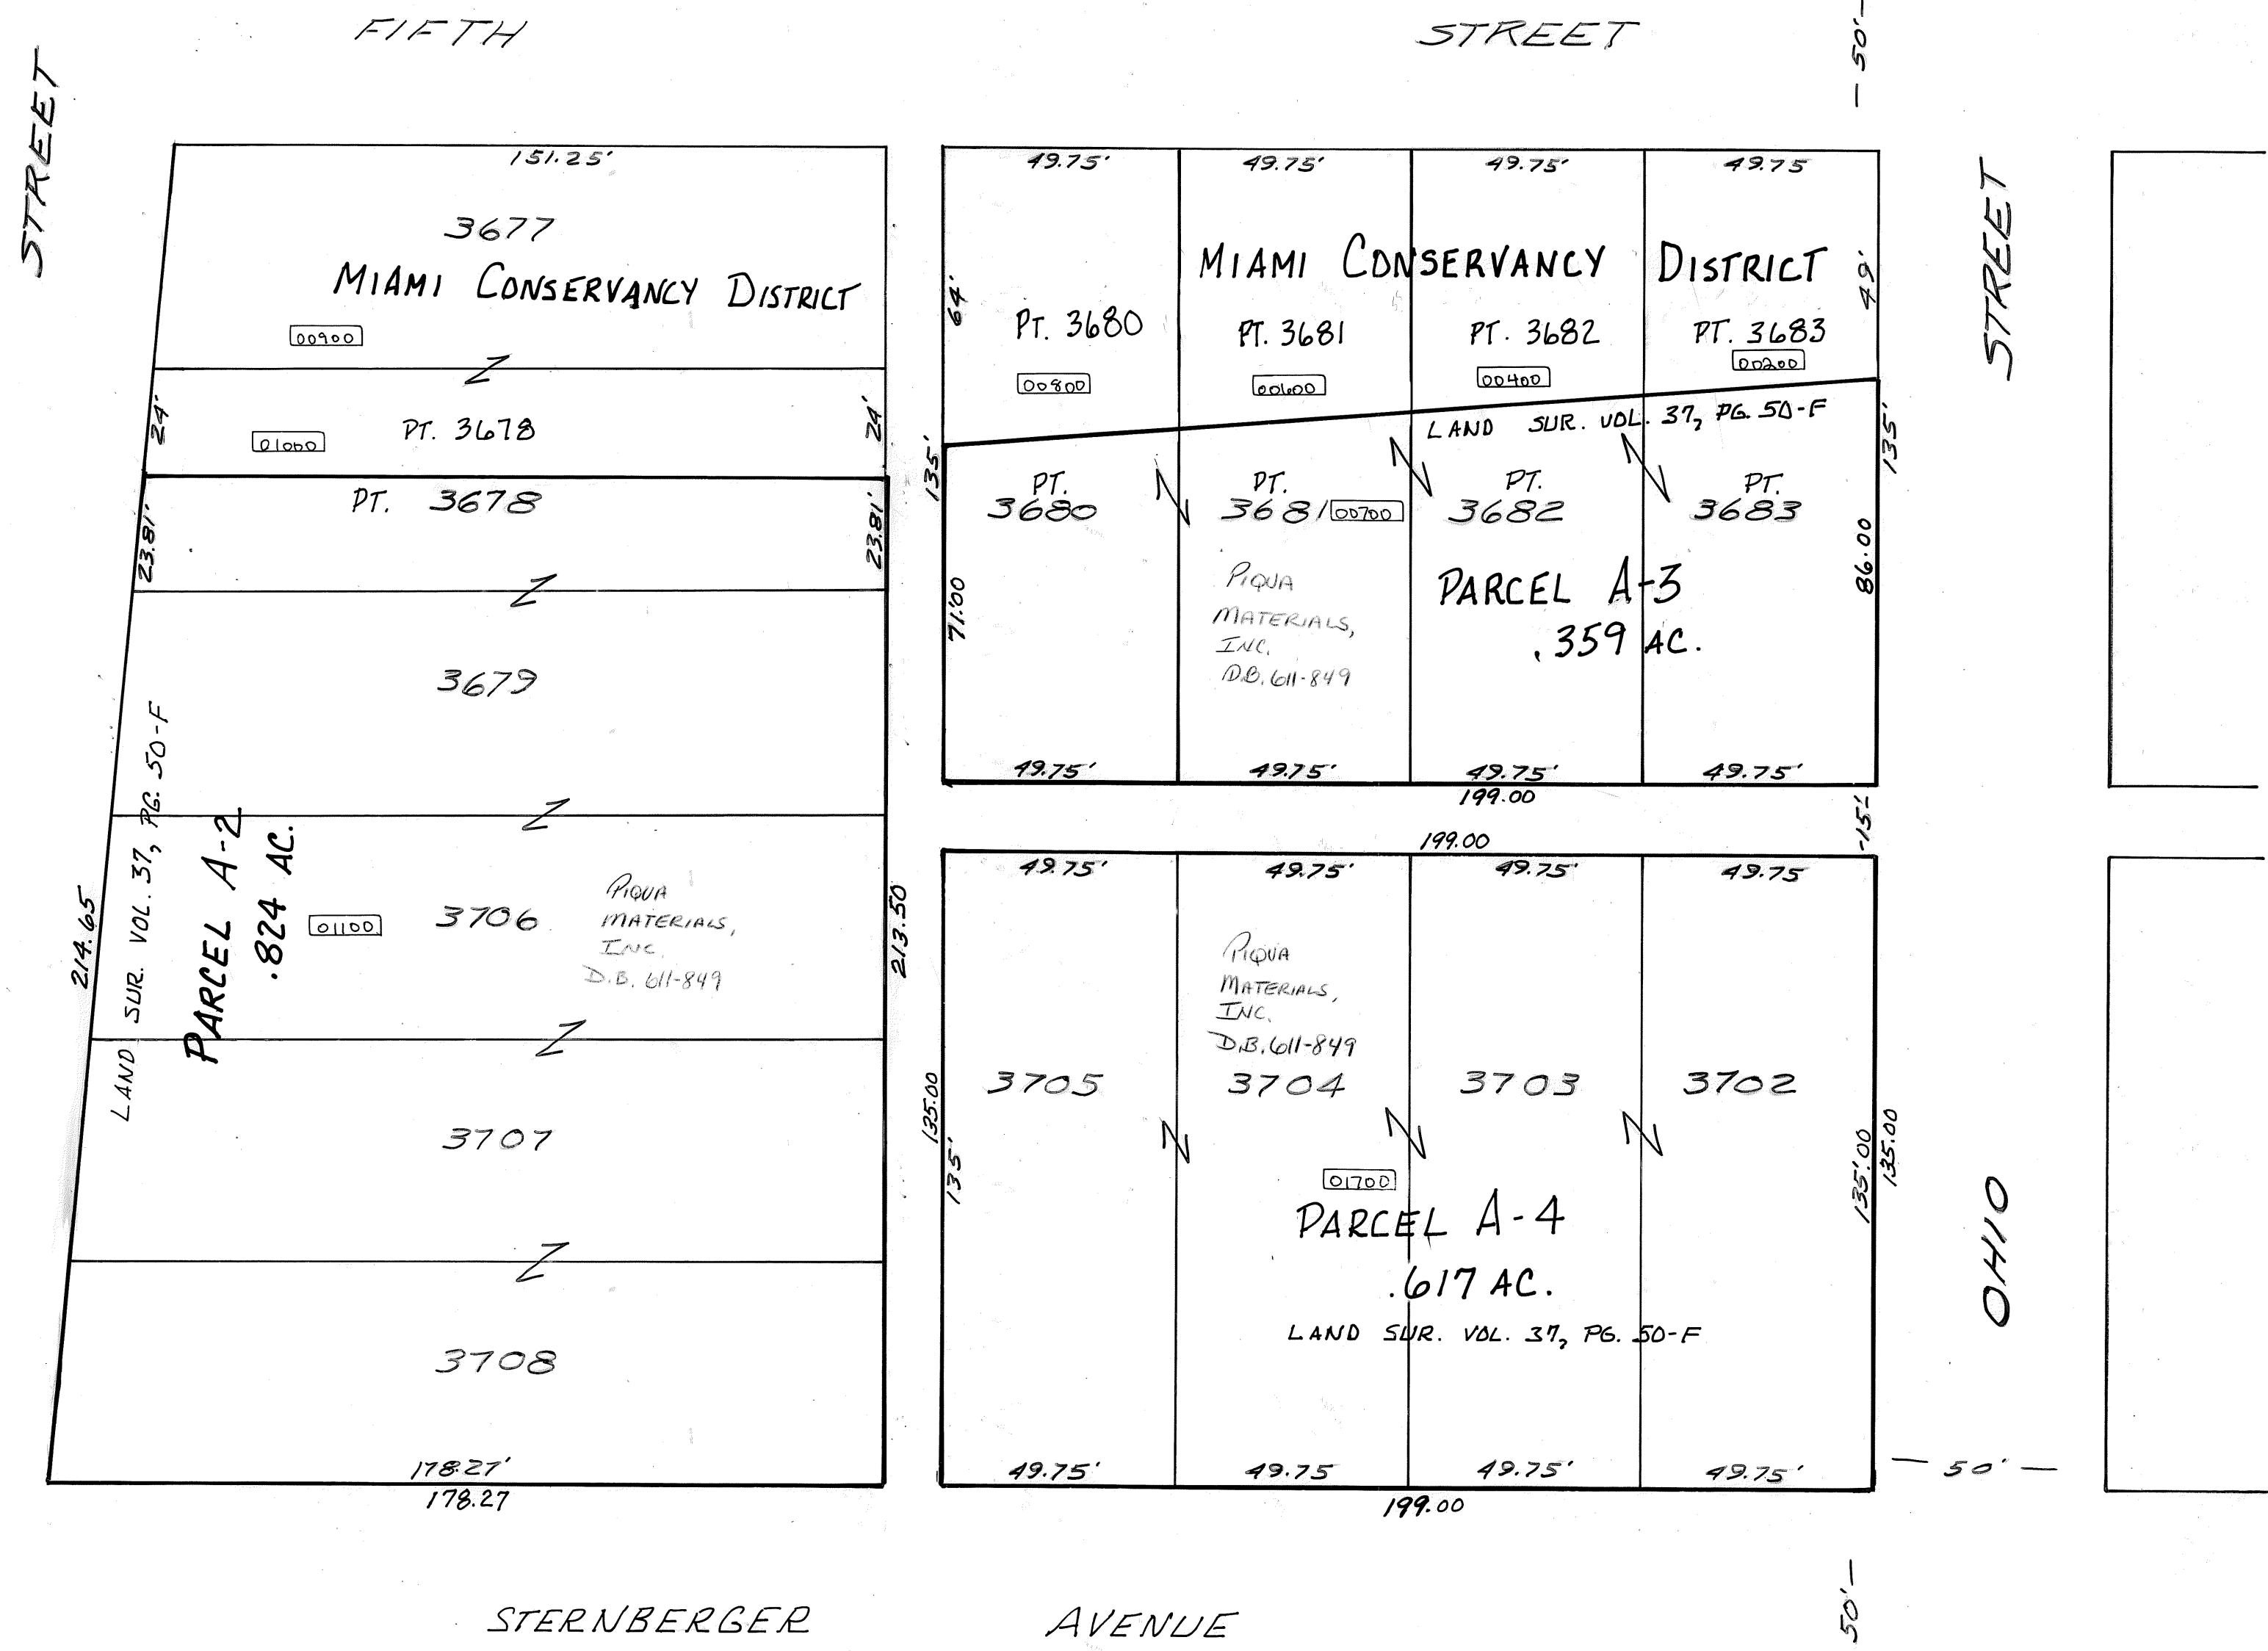 FIFTH STREET
— 50' —
STREET
151.25'
3677
MIAMI CONSERVANCY DISTRICT
00900
24'
01000
PT. 3678
24'
23.81'
PT. 3678
23.81'
3679
LAND SUR. VOL. 37, PG. 50-F
PARCEL A-2
.824 AC.
214.65
01100
3706
PIQUA
MATERIALS,
INC.
D.B. 611-849
213.50
3707
3708
178.27'
178.27
49.75'
49.75'
49.75'
49.75
MIAMI CONSERVANCY DISTRICT
64'
49'
PT. 3680
PT. 3681
PT. 3682
PT. 3683
00800
00600
00400
00200
LAND SUR. VOL. 37, PG. 50-F
135'
135'
PT.
3680
PT.
3681
00700
PT.
3682
PT.
3683
71.00
86.00
PIQUA
MATERIALS,
INC.
D.B. 611-849
PARCEL A-3
.359 AC.
49.75'
49.75'
49.75'
49.75'
199.00
-15'-
199.00
49.75'
49.75'
49.75'
49.75
PIQUA
MATERIALS,
INC.
D.B. 611-849
3705
3704
3703
3702
135.00
135'
135'.00
135.00
01700
PARCEL A-4
.617 AC.
LAND SUR. VOL. 37, PG. 50-F
49.75'
49.75
49.75'
49.75'
199.00
STREET
OHIO
— 50' —
50' —
STERNBERGER AVENUE